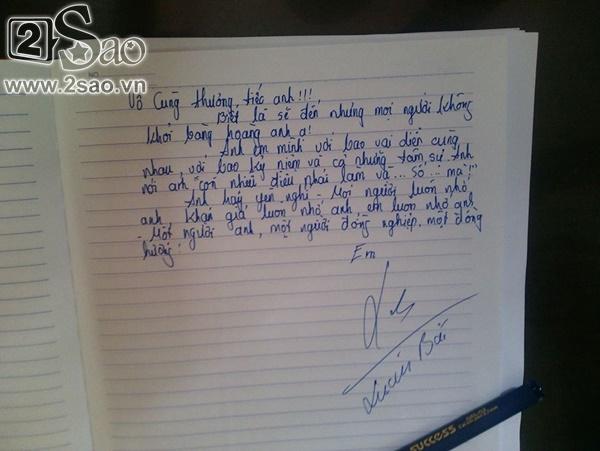 2Sao
www.2sao.vn
NO.
Vô cùng thương tiếc anh!!!
Biết là sẽ đến nhưng mọi người không
khỏi bàng hoàng anh ạ!
Anh em mình với bao vai diễn cùng
nhau, với bao kỷ niệm và cả những tâm sự. Anh
nói anh "còn nhiều điều phải làm và... Số... mà!"
Anh hãy yên nghỉ - Mọi người luôn nhớ
anh. Khán giả luôn nhớ anh, em luôn nhớ anh
- Một người anh, một người đồng nghiệp, một đồng
hương!
Em
Bắc
SUCCESS